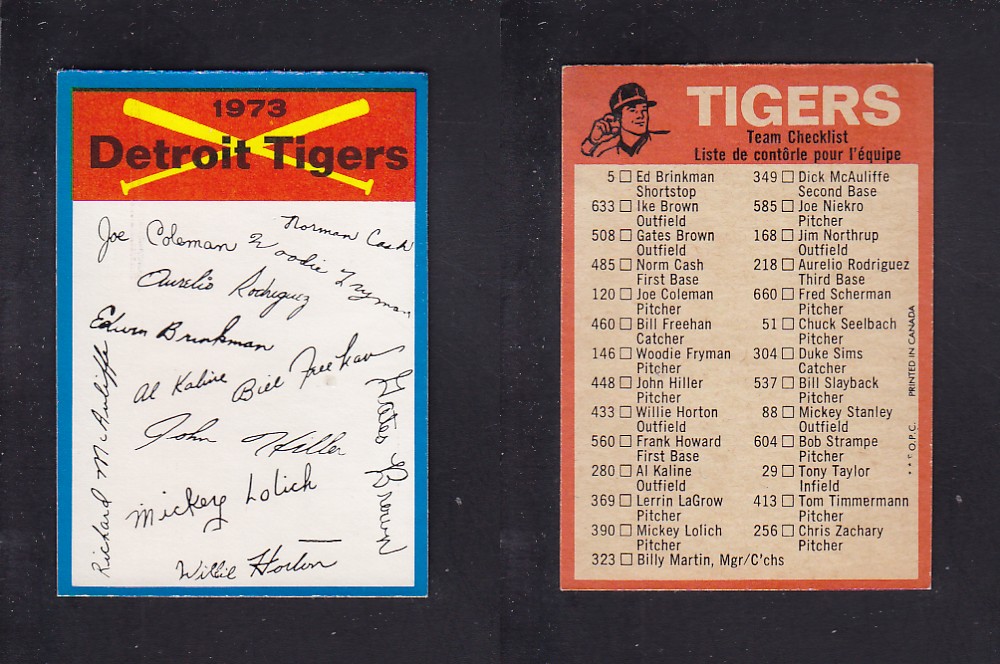 1973
Detroit Tigers
Joe Coleman
Norman Cash
Woodie Fryman
Aurelio Rodriguez
Edwin Brinkman
Al Kaline
Bill Freehan
Gates Brown
John Hiller
Richard McAuliffe
Mickey Lolich
Willie Horton
TIGERS
Team Checklist
Liste de contôrle pour l'équipe
5 Ed Brinkman
Shortstop
633 Ike Brown
Outfield
508 Gates Brown
Outfield
485 Norm Cash
First Base
120 Joe Coleman
Pitcher
460 Bill Freehan
Catcher
146 Woodie Fryman
Pitcher
448 John Hiller
Pitcher
433 Willie Horton
Outfield
560 Frank Howard
First Base
280 Al Kaline
Outfield
369 Lerrin LaGrow
Pitcher
390 Mickey Lolich
Pitcher
323 Billy Martin, Mgr/C'chs
349 Dick McAuliffe
Second Base
585 Joe Niekro
Pitcher
168 Jim Northrup
Outfield
218 Aurelio Rodriguez
Third Base
660 Fred Scherman
Pitcher
51 Chuck Seelbach
Pitcher
304 Duke Sims
Catcher
537 Bill Slayback
Pitcher
88 Mickey Stanley
Outfield
604 Bob Strampe
Pitcher
29 Tony Taylor
Infield
413 Tom Timmermann
Pitcher
256 Chris Zachary
Pitcher
* * © O.P.C. PRINTED IN CANADA